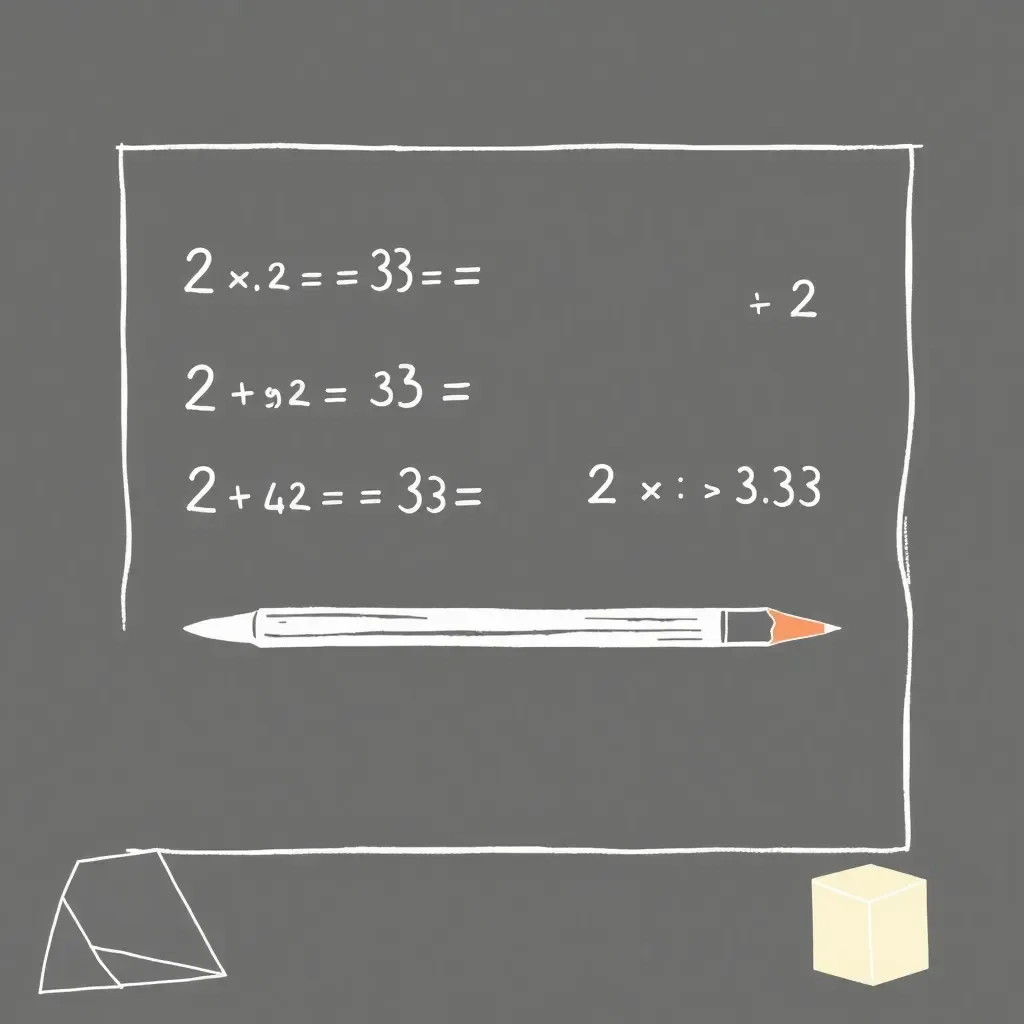 2 ×.2 = = 33 = =
÷ 2
2 + 92 = 33 =
2 + 42 = = 33 =
2 × : > 3.33